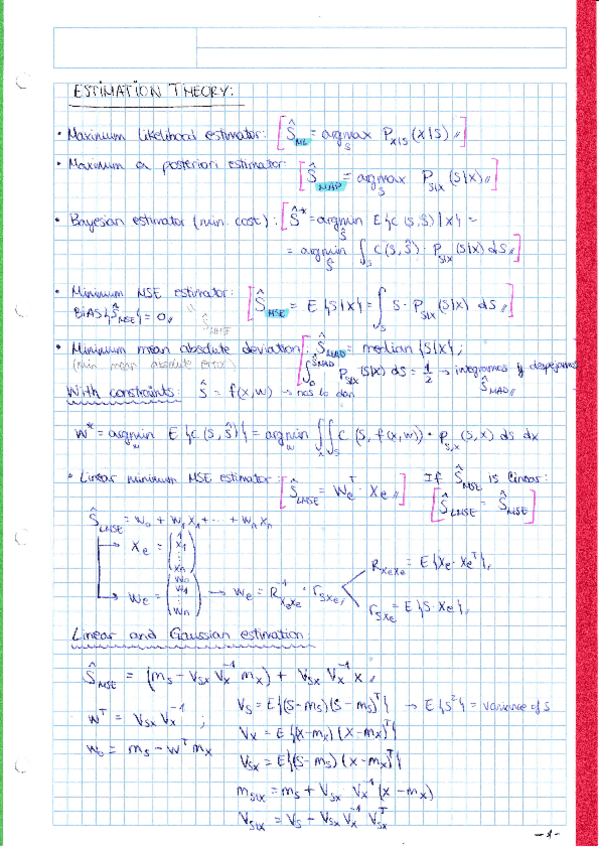 ESTIMATION THEORY:
• Maximum likelihood estimator: [Ŝ_ML = argmax_S P_X|S (X|S)]
• Maximum a posteriori estimator: [Ŝ_MAP = argmax_S P_S|X (S|X)]
• Bayesian estimator (min. cost): [Ŝ* = argmin_Ŝ E{c(S,Ŝ)|X} =
= argmin_Ŝ ∫_S C(S,Ŝ) · P_S|X (S|X) dS]
• Minimum MSE estimator: [Ŝ_MSE = E{S|X} = ∫_S S · P_S|X (S|X) dS]
BIAS{Ŝ_MSE} = 0
• Minimum mean absolute deviation: [Ŝ_MAD = median {S|X};
(min mean absolute error)
∫_0^Ŝ_MAD P_S|X (S|X) dS = 1/2 → integramos y despejamos Ŝ_MAD]
With constraints: Ŝ = f(x,w) → nos lo dan
W* = argmin_w E{c(S,Ŝ)} = argmin_w ∫_X ∫_S C(S, f(x,w)) · P_S,X (S,x) ds dx
• Linear minimum MSE estimator: [Ŝ_LMSE = We^T · Xe] If Ŝ_MSE is linear:
[Ŝ_LMSE = Ŝ_MSE]
Ŝ_LMSE = W0 + W1 X1 + ... + Wn Xn
Xe = (1 X1 ... Xn)
We = (W0 W1 ... Wn) → We = R_XeXe^-1 · r_SXe,
R_XeXe = E{Xe · Xe^T},
r_SXe = E{S · Xe},
Linear and Gaussian estimation:
Ŝ_MSE = (m_S - V_SX V_X^-1 m_X) + V_SX V_X^-1 X
W^T = V_SX V_X^-1 ;
W0 = m_S - W^T m_X
V_S = E{(S-m_S)(S-m_S)^T} → E{S²} = variance of S
V_X = E{(X-m_X)(X-m_X)^T}
V_SX = E{(S-m_S)(X-m_X)^T}
m_S|X = m_S + V_SX · V_X^-1 (X - m_X)
V_S|X = V_S - V_SX V_X^-1 V_SX^T
-1-